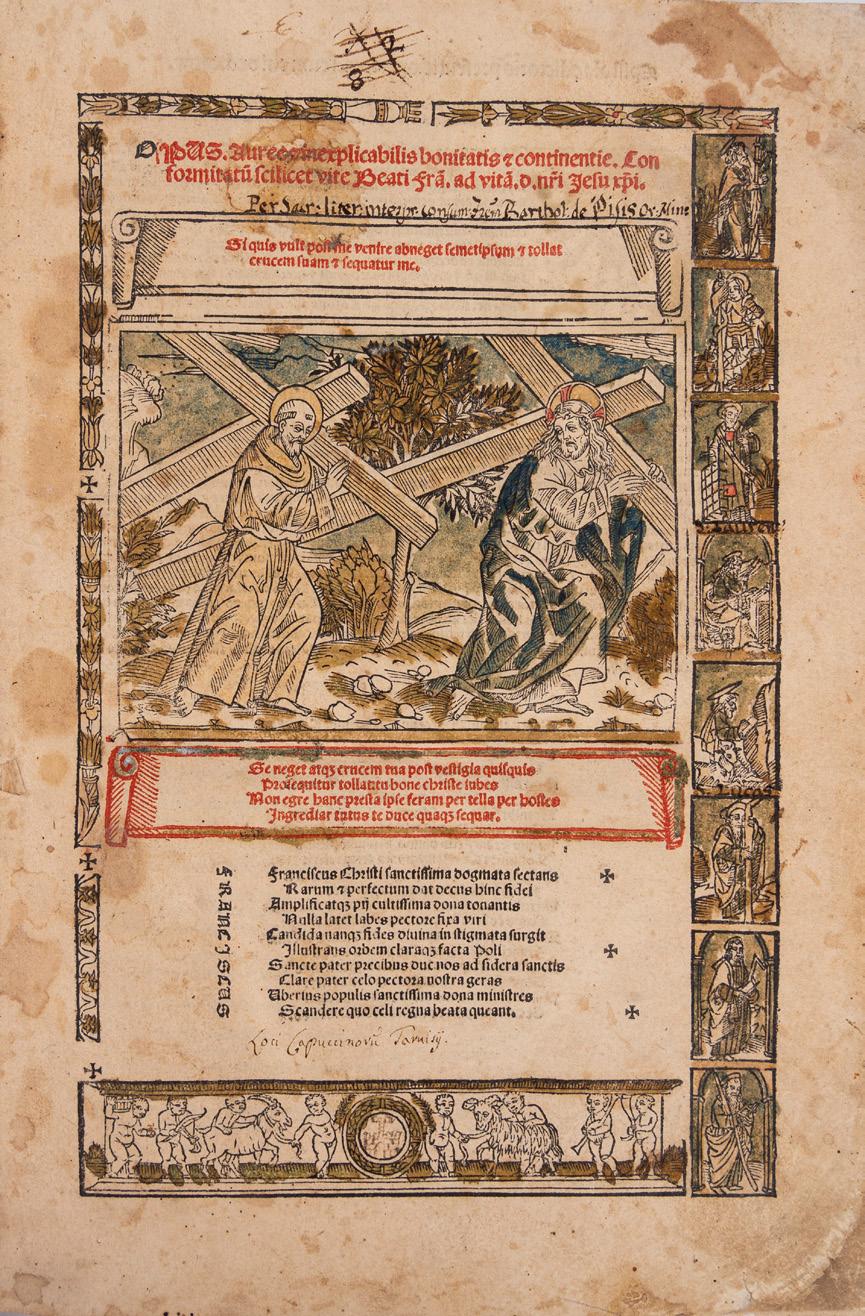 8
OPUS. Auree ⁊ inexplicabilis bonitatis ⁊ continentie. Con
formitatũ scilicet vite Beati Frã. ad vitã. d. nr̃i Jesu xp̃i.
Per Sacr: liter: interpr: Barthol: de Pisis Or: Mine
Si quis vult post me venire abneget semetipsum ⁊ tollat
crucem suam ⁊ sequatur me.
Se neget atqꝫ crucem tua post vestigia quisquis
Prosequitur tollat tu bone christe iubes
Non egre hanc presta ipse feram per tella per hostes
Ingrediar tutus te duce quaqꝫ sequar.
FRANCISCUS
Franciscus Christi sanctissima dogmata sectans
Rarum ⁊ perfectum dat decus hinc fidei
Amplificatqꝫ pij cultissima dona tonantis
Nulla latet labes pectore fixa viri
Candida nanqꝫ fides diuina in stigmata surgit
Illustrans orbem claraqꝫ facta Poli
Sancte pater precibus duc nos ad sidera sanctis
Clare pater celo pectora nostra geras
Uberius populis sanctissima dona ministres
Scandere quo celi regna beata queant.
Loci Capuccinorũ Taruisij.
S. Laurent
S. Lucas